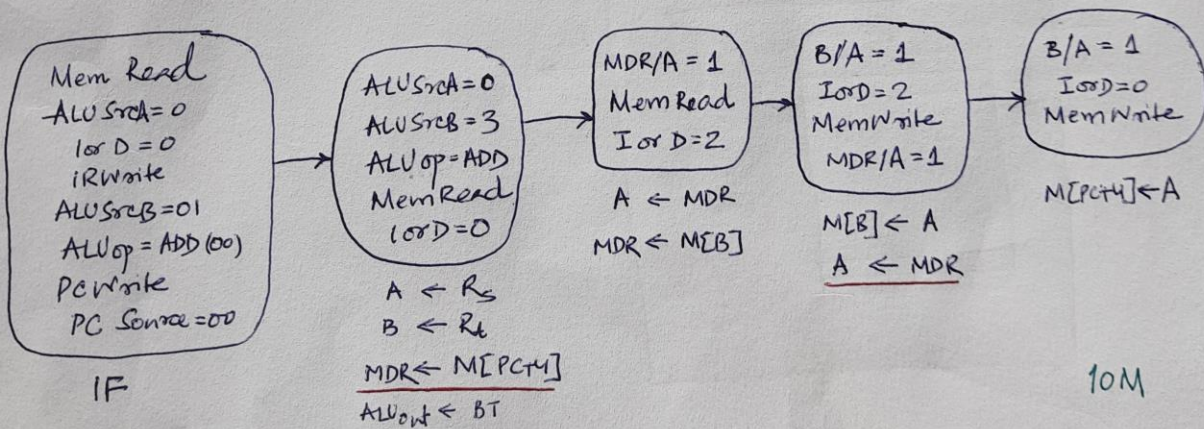 Mem Read
ALUSrcA=0
IorD=0
IRWrite
ALUSrcB=01
ALUop=ADD(00)
PCWrite
PC Source=00
IF
ALUSrcA=0
ALUSrcB=3
ALUop=ADD
MemRead
IorD=0
A ← Rs
B ← Rt
MDR ← M[PC+4]
ALUout ← BT
MDR/A=1
MemRead
IorD=2
A ← MDR
MDR ← M[B]
B/A=1
IorD=2
MemWrite
MDR/A=1
M[B] ← A
A ← MDR
B/A=1
IorD=0
MemWrite
M[PC+4] ← A
10M